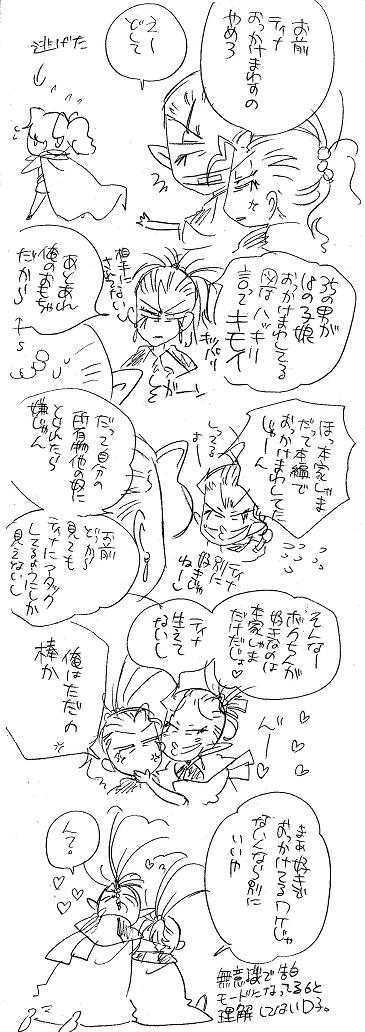 お前
ティナ
おっかけまわすの
やめろ
えー
どして
逃げた
35の男が
18の小娘
おっかけまわしてる
図はハッキリ
言ってキモイ
キッパリ
相手にない
あとあれ
俺のおもちゃ
だから
←S
ほっ本家しゃま
だって本編で
おっかけまわしてた
じゃーん
してる
よ
別にティナ
好きじゃ
ねーし
だって自分の
所有物他の奴に
とられたら
嫌じゃん
お前
どっから
見ても
ティナにアタック
してるようにしか
見えないし
そんなー
ボクちんが
好きなのは
本家しゃま
だけだじょ♡
んー
ティナ
生えて
ないし
俺はただの
棒か
まあ好きで
おっかけてるワケじゃ
ないんなら別に
いいや
んで。
無意識で告白
モードになってる6と
理解してないD子。